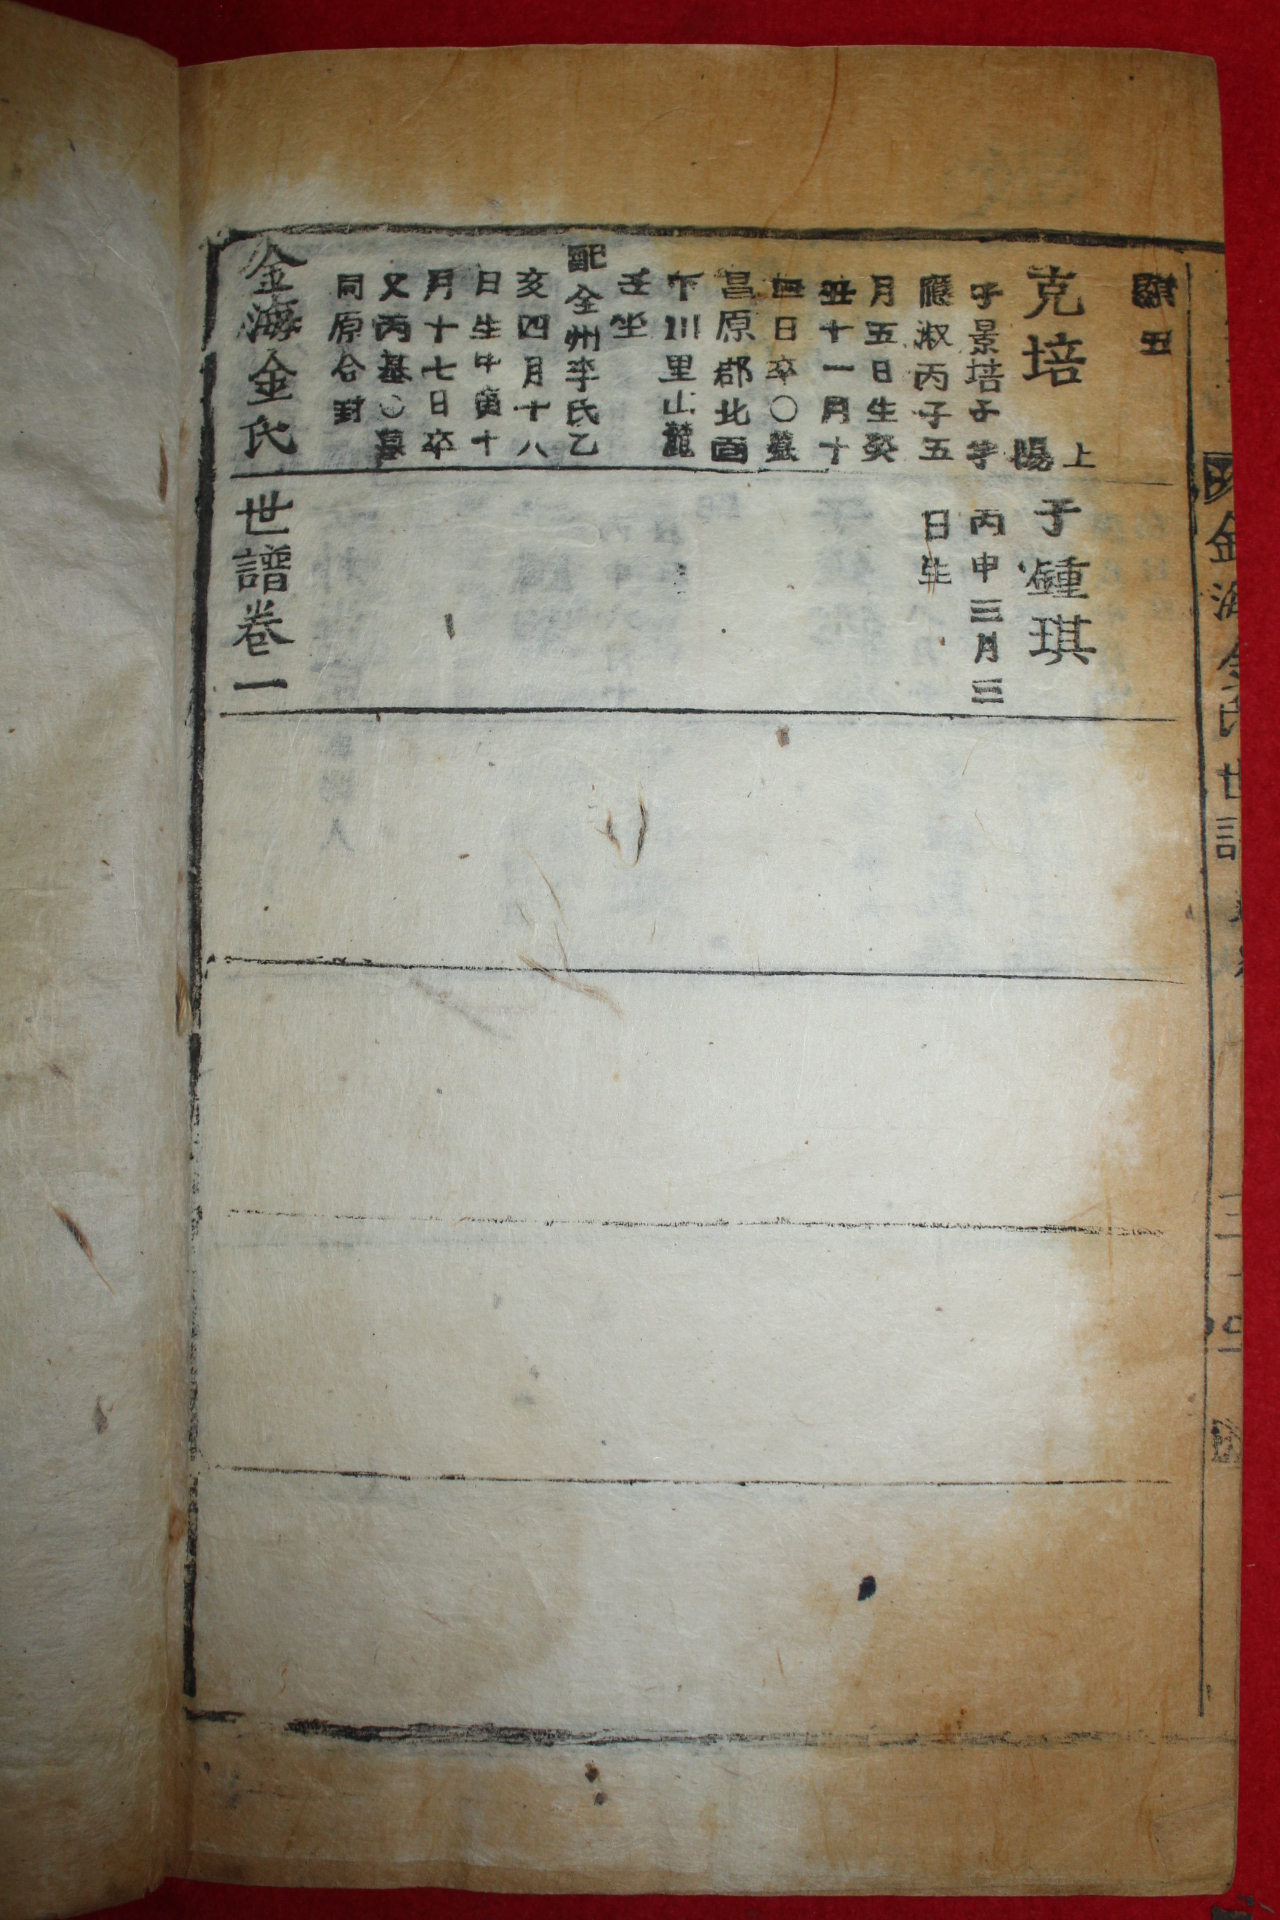 五
克培
陽上
子景培子字
應淑丙子五
月五日生癸
丑十一月十
日卒○墓
昌原郡北面
下川里山麓
壬坐
配全州李氏乙
亥四月十八
日生甲寅十
月十七日卒
又丙墓○墓
同原合封
子鍾琪
丙申三月三
日生
金海金氏世譜卷一
金海金氏世譜